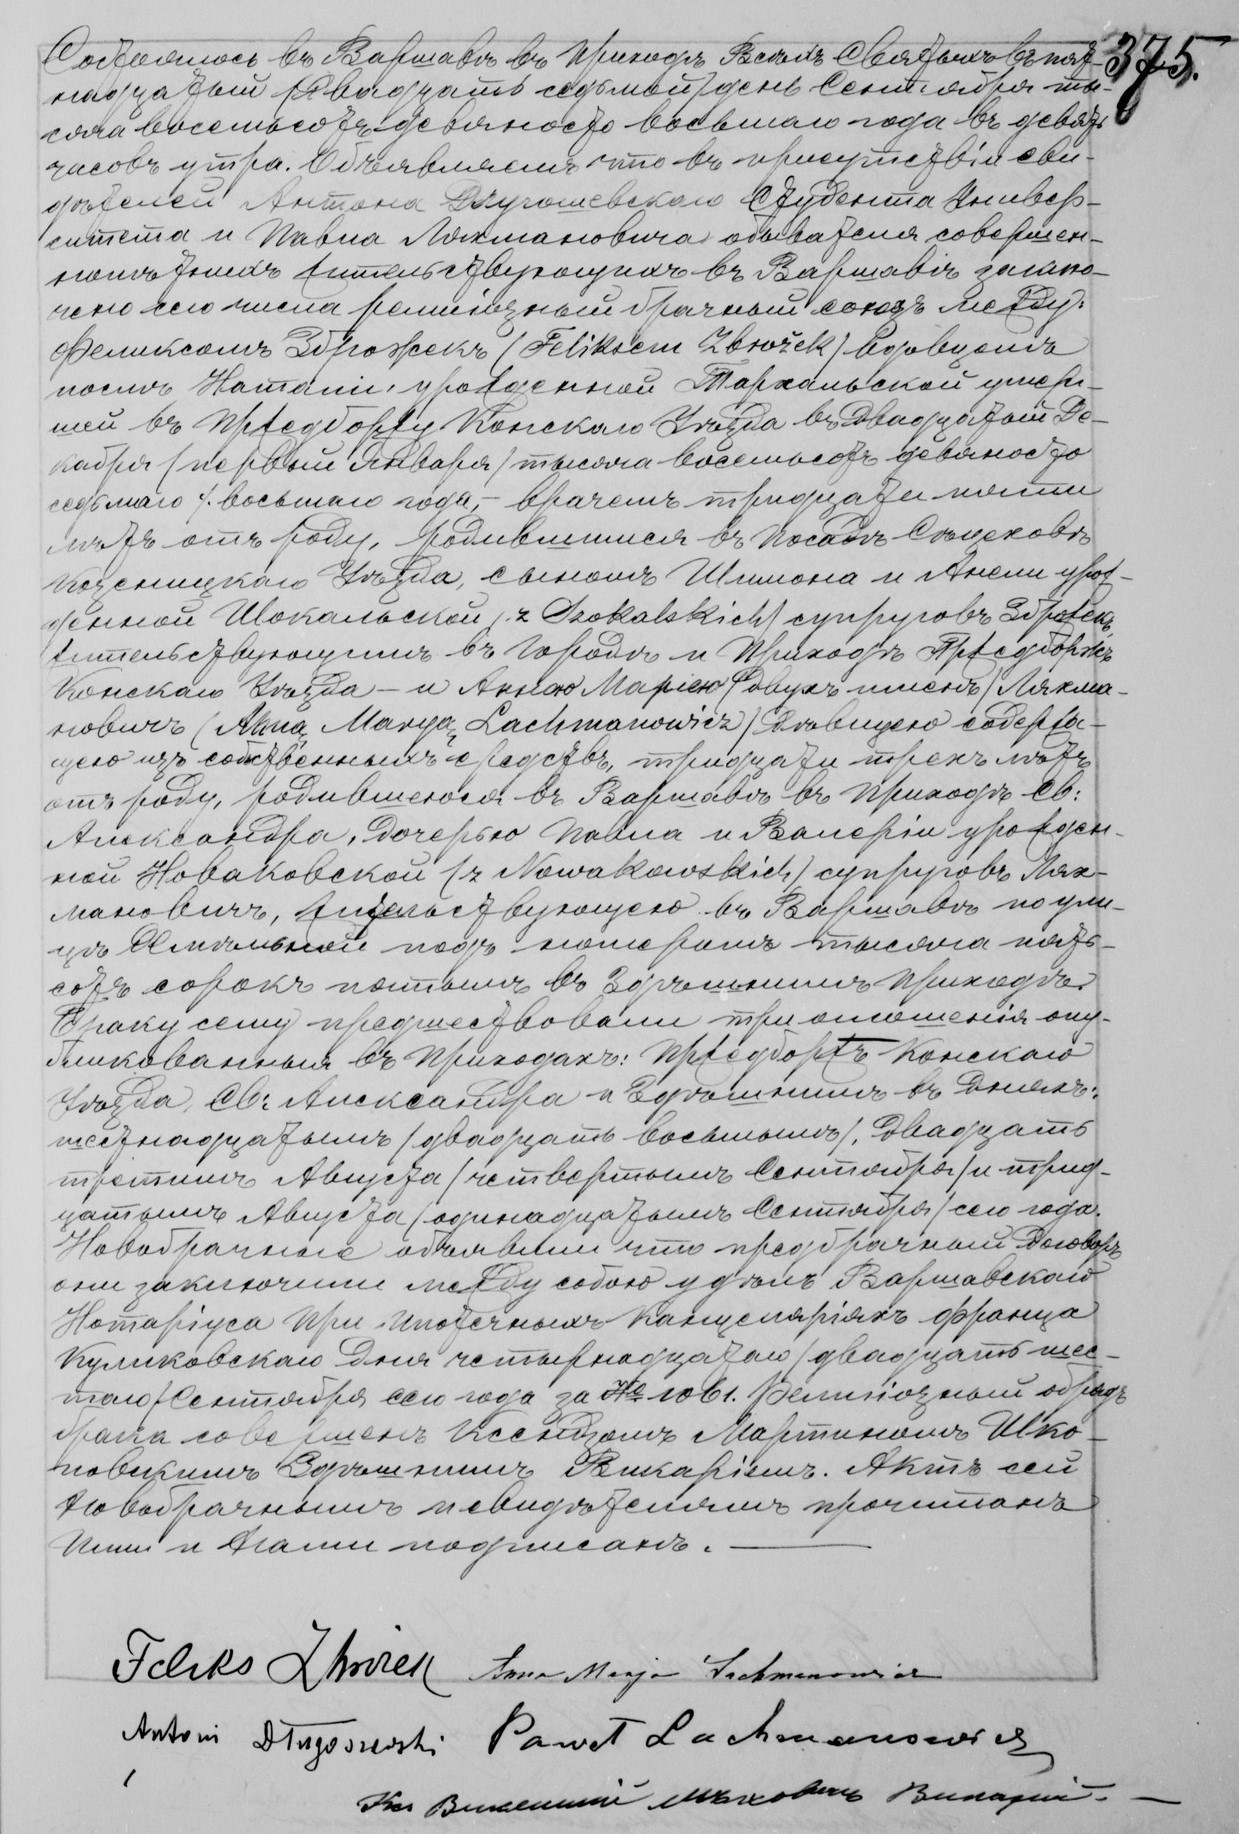 375.
Состоялось въ Варшавѣ въ приходѣ Всѣхъ Святыхъ въ пят-
надцатый /двадцать седьмой/ день Сентября ты-
сяча восемьсотъ девяносто восьмаго года въ девять
часовъ утра. Объявляемъ что въ присутствіи сви-
дѣтелей Антона Длугошевскаго Студента Универ-
ситета и Павла Ляхмановича обывателя совершен-
нолѣтнихъ жительствующихъ въ Варшавѣ заклю-
чено сего числа религіозный брачный союзъ между:
Феликсомъ Зброжекъ (Feliksem Zbrożek) вдовцомъ
послѣ Наталіи, урожденной Тархальской умер-
шей въ Пржедборжу Конскаго Уѣзда въ двадцатый Де-
кабря /первый Января/ тысяча восемьсотъ девяносто
седьмаго /: восьмаго года, – врачемъ тридцати пяти
лѣтъ отъ роду, родившимся въ посадѣ Сѣцеховѣ
Козеницкаго Уѣзда, сыномъ Шимона и Анели урож-
денной Шокальской /z Szokalskich/ супруговъ Зброжекъ,
жительствующимъ въ городѣ и приходѣ Пржедборжѣ
Конскаго Уѣзда – и Анною Маріею (двухъ именъ) Ляхма-
новичъ (Anną Maryą Lachmanowicz) дѣвицею содержа-
щею изъ собственныхъ средствъ, тридцати трехъ лѣтъ
отъ роду, родившеюся въ Варшавѣ въ приходѣ Св:
Александра, дочерью Павла и Валеріи урожден-
ной Новаковской (z Nowakowskich) супруговъ Лях-
мановичъ, жительствующею въ Варшавѣ по ули-
цѣ подъ номеромъ тысяча пять-
сотъ сорокъ пятымъ въ здѣшнемъ приходѣ.
Браку сему предшествовали три оглашенія опу-
бликованныя въ приходахъ: Пржедборжъ Конскаго
Уѣзда, Св: Александра и здѣшнемъ въ дняхъ:
шестнадцатымъ /двадцать восьмымъ/, двадцать
третьимъ Августа /четвертымъ Сентября/ и трид-
цатымъ Августа /одинадцатымъ Сентября/ сего года.
Новобрачные объявили что предбрачный договоръ
они заключили между собою у дѣлъ Варшавскаго
Нотаріуса при ипотечныхъ канцеляріяхъ Франца
Куликовскаго дня четырнадцатаго /двадцать шес-
таго/ Сентября сего года за № 1061. Религіозный обрядъ
брака совершенъ Ксендзомъ Мартиномъ Шко-
повскимъ здѣшнимъ Викаріемъ. Актъ сей
новобрачнымъ и свидѣтелямъ прочитанъ
ими и нами подписанъ.
Feliks Zbrożek Anna Marja Lachmanowicz
Antoni Długoszewski Paweł Lachmanowicz
Кс Викарій